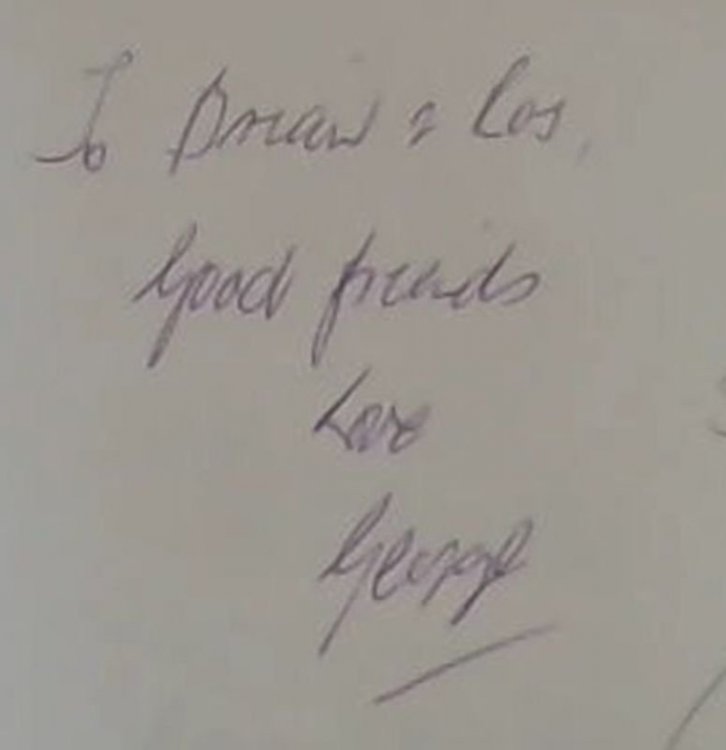 To Brian & Ros,
Good friends
Love
George